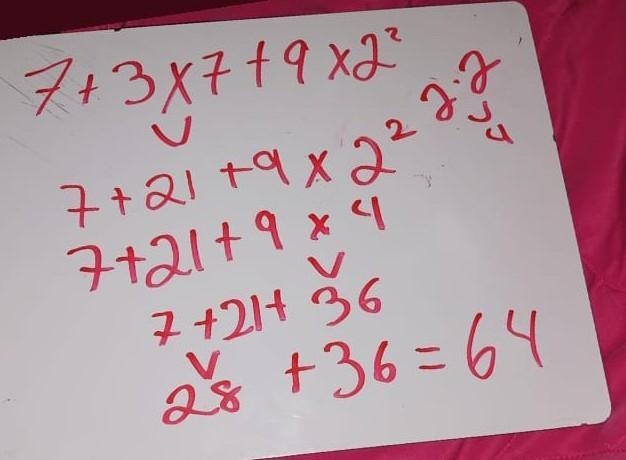 7+3x7+9x2²
2·2
4
7+21+9x2²
7+21+9x4
7+21+36
28+36=64